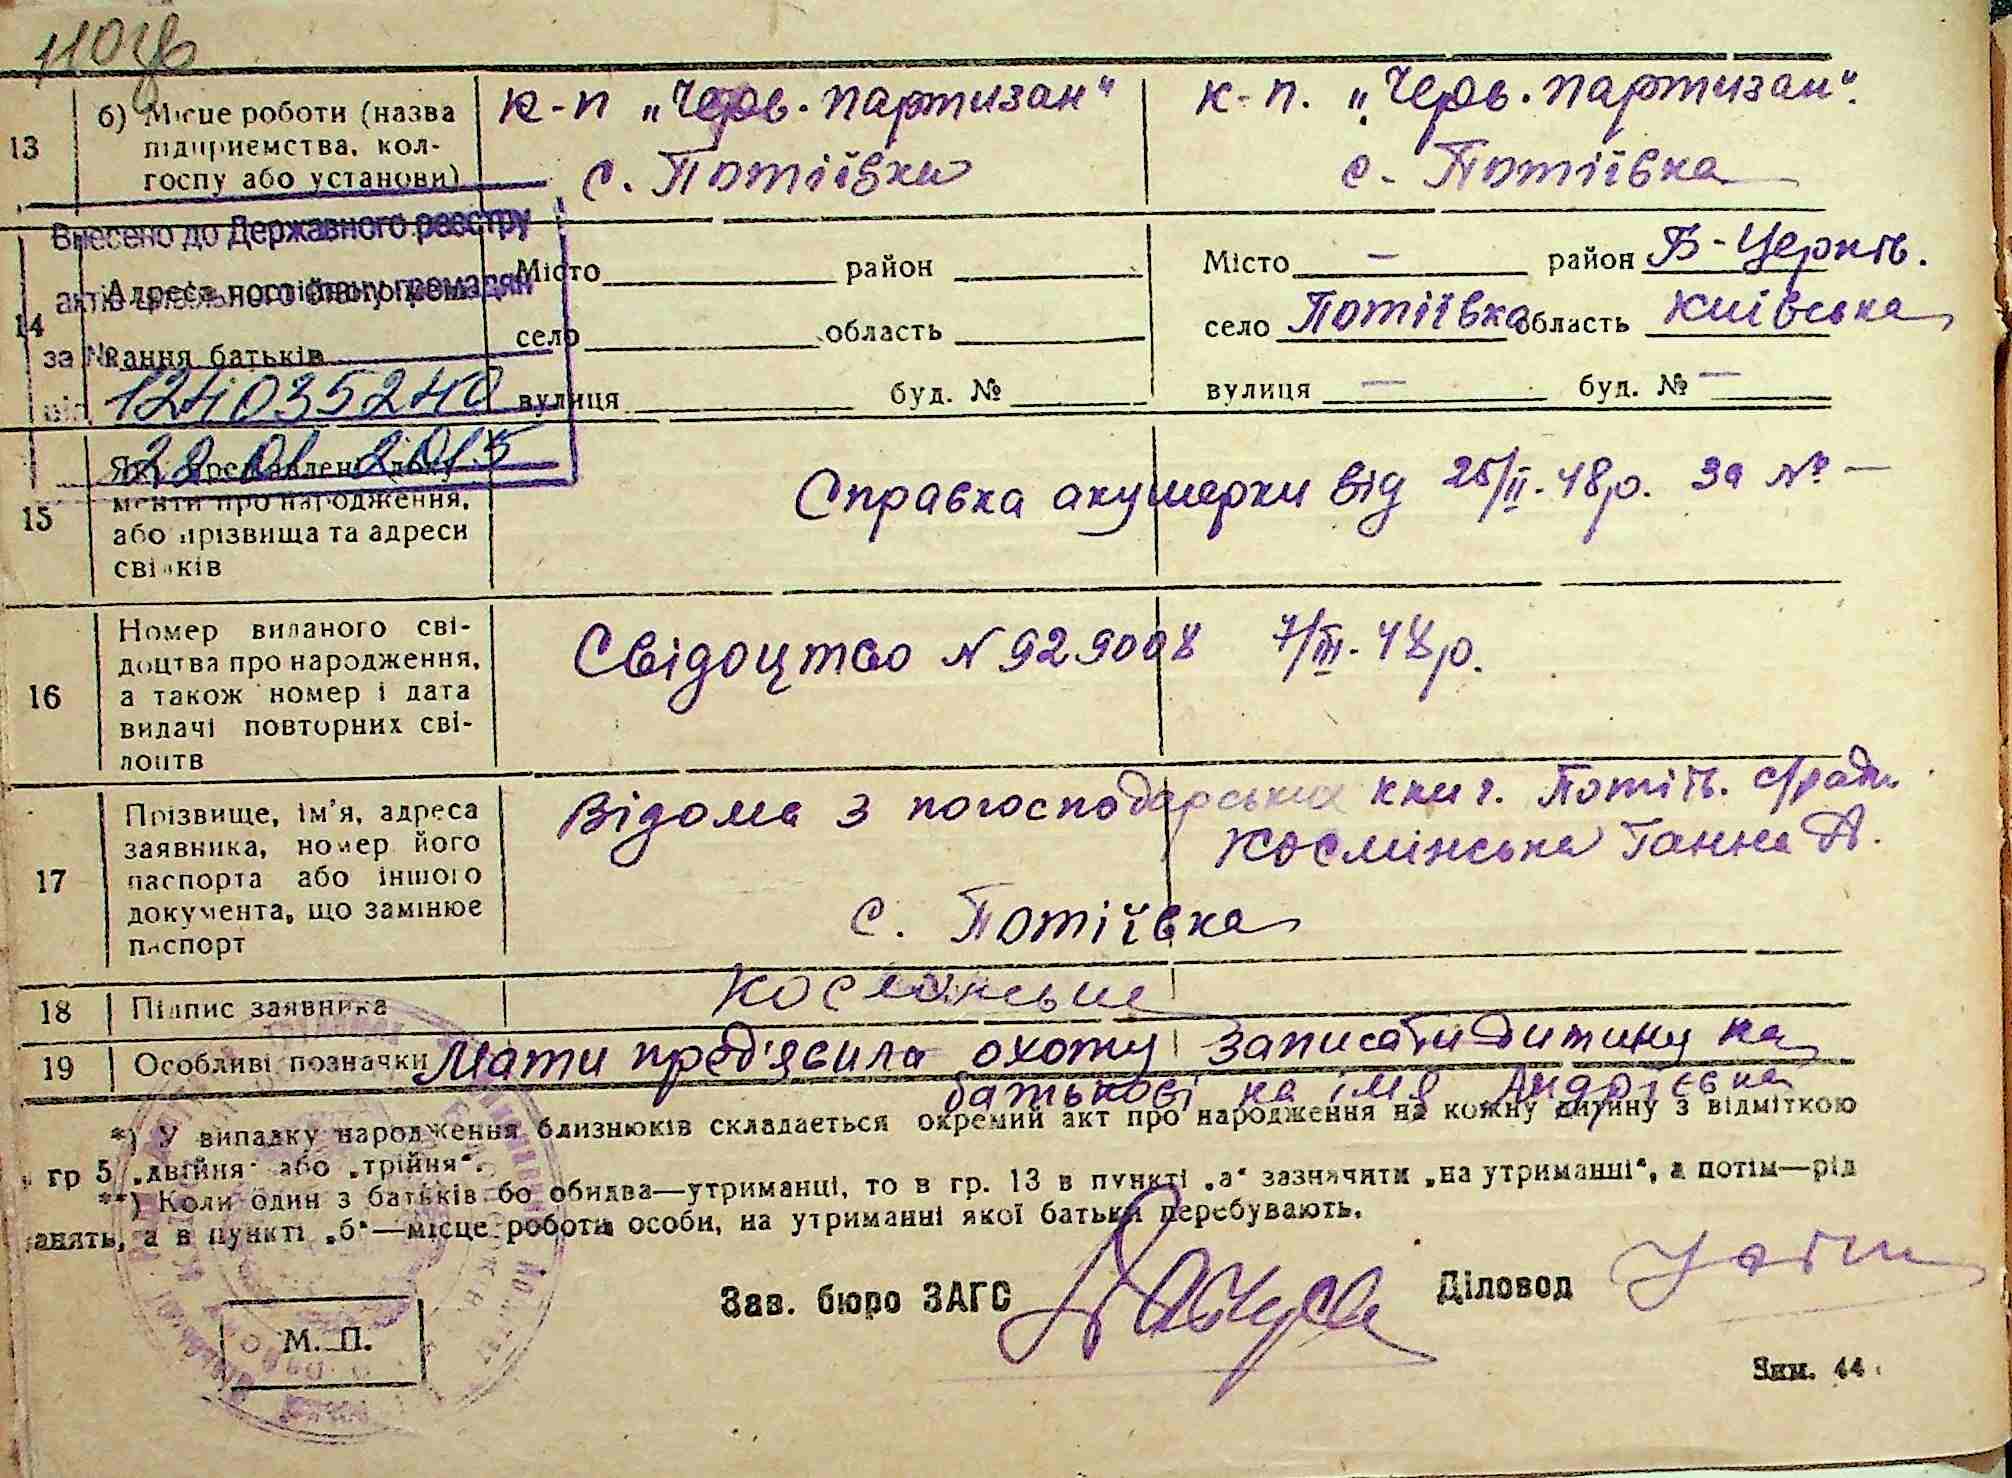 13
б) Місце роботи (назва
підприємства, кол-
госпу або установи)
к-п „Черв. партизан"
с. Потіївка
к-п. „Черв. партизан".
с. Потіївка
Внесено до Державного реєстру
актів цивільного стану громадян
за №
від
124035240
22 01 2015
14
Адреса постійного
мешкання батьків
Місто район
село область
вулиця буд. №
Місто — район Б-Церків.
село Потіївка область Київська
вулиця — буд. № —
15
Які представлені доку-
менти про народження,
або прізвища та адреси
свідків
Справка акушерки від 25/II-48р. за № —
16
Номер виданого сві-
доцтва про народження,
а також номер і дата
видачі повторних сві-
доцтв
Свідоцтво N 929008 7/III-48р.
17
Прізвище, ім'я, адреса
заявника, номер його
паспорта або іншого
документа, що замінює
паспорт
Відома з погосподарських книг. Потіїв. с/ради
Космінська Ганна А.
с. Потіївка
18
Підпис заявника
19
Особливі позначки
Мати пред'явила охоту записати дитину на
батькові на імя Андріївна
*) У випадку народження близнюків складається окремий акт про народження на кожну дитину з відміткою
в гр 5 „двійня" або „трійня".
**) Коли один з батьків бо обидва—утриманці, то в гр. 13 в пункті „а" зазначити „на утриманні", а потім—рід
занять, а в пункті „б"—місце роботи особи, на утриманні якої батьки перебувають.
Зав. бюро ЗАГС
Діловод
М. П.
Зим. 44